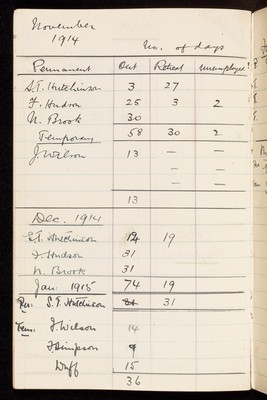 November
1914
No. of days
Permanent Out Retreat unemployed
S.E. Hutchinson 3 27
F. Hudson 25 3 2
N. Brook 30
Temporary 58 30 2
J. Wilson 13 — —
— —
— —
13
Dec. 1914
S.E. Hutchinson 12 19
F. Hudson 31
N. Brook 31
Jan: 1915 74 19
Per: S.E. Hutchinson 31
Tem: J. Wilson 14
J. Simpson
Duff 15
36